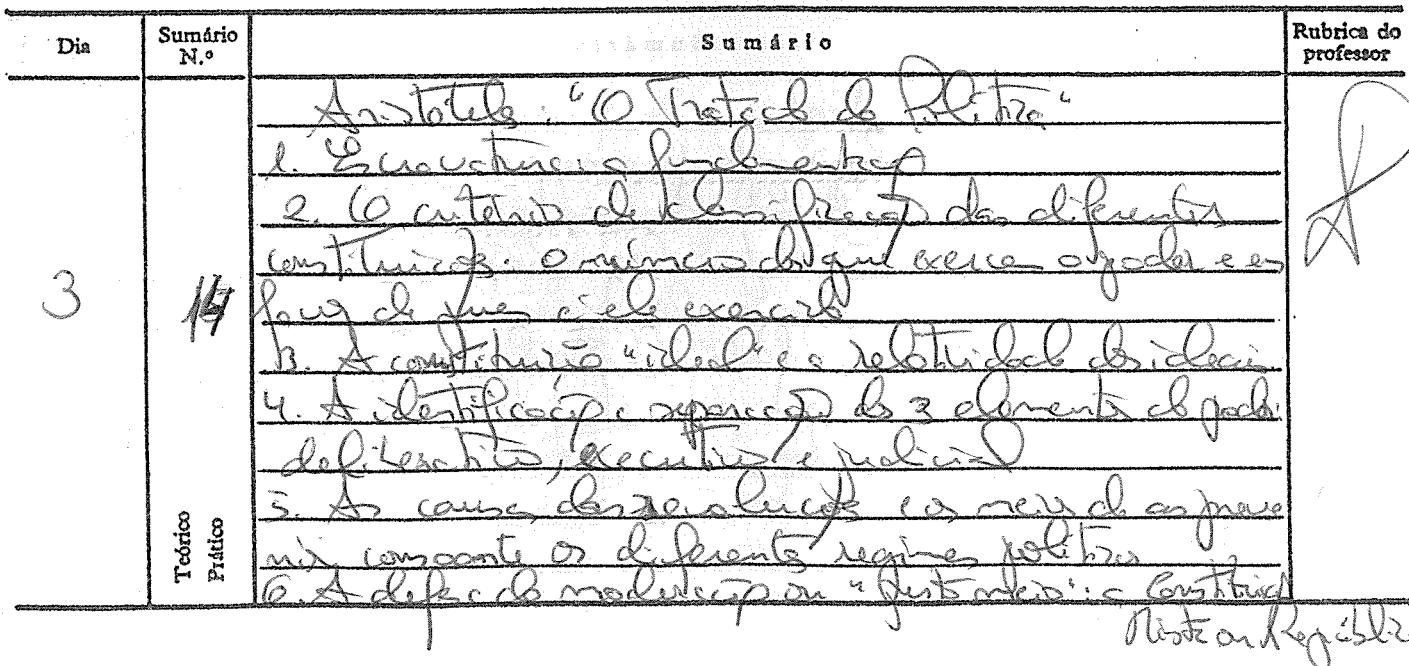 Dia
Sumário N.º
Sumário
Rubrica do professor
Aristóteles: "O Tratado da Política"
1. Escravatura: a fundamentação
2. O critério de classificação das diferentes
constituições. O número dos que exercem o poder e em
favor de quem é ele exercido
3. A constituição "ideal" e a relatividade dos ideais
3
14
4. A identificação e separação dos 3 elementos do poder:
deliberativo, executivo e judicial
5. As causas das revoluções e os meios de as preve
nir consoante os diferentes regimes políticos
6. A defesa da moderação ou "justo meio": a Constituição
Mista ou República
Teórico
Prático